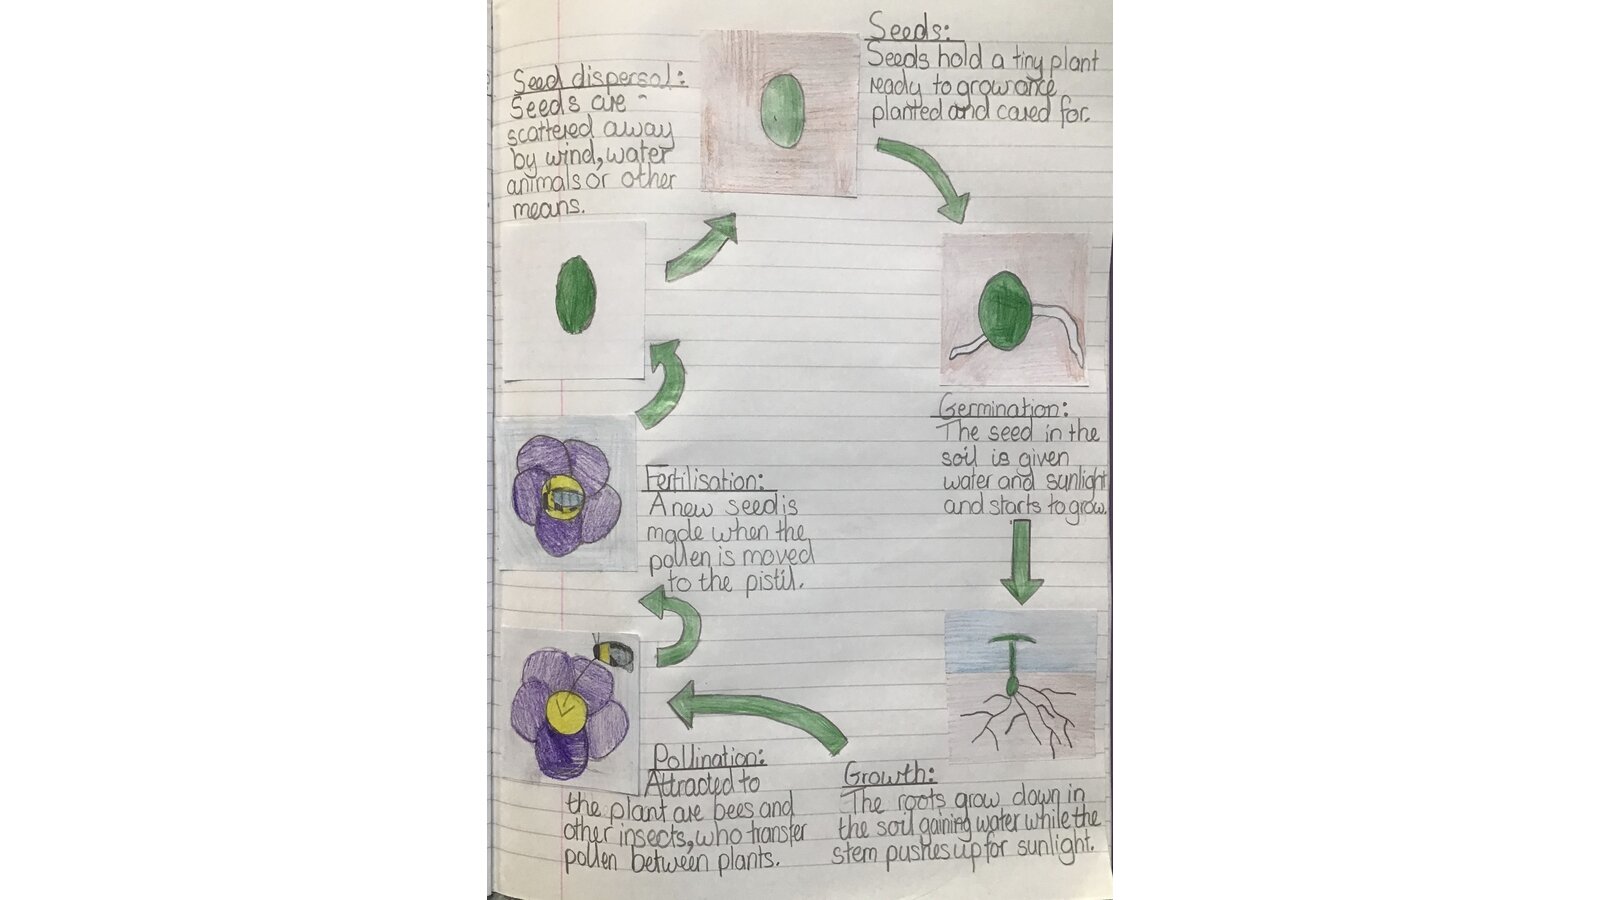 Seeds:
Seeds hold a tiny plant
ready to grow once
planted and cared for.
Germination:
The seed in the
soil is given
water and sunlight
and starts to grow.
Growth:
The roots grow down in
the soil gaining water while the
stem pushes up for sunlight.
Pollination:
Attracted to
the plant are bees and
other insects, who transfer
pollen between plants.
Fertilisation:
A new seed is
made when the
pollen is moved
to the pistil.
Seed dispersal:
Seeds are
scattered away
by wind, water
animals or other
means.